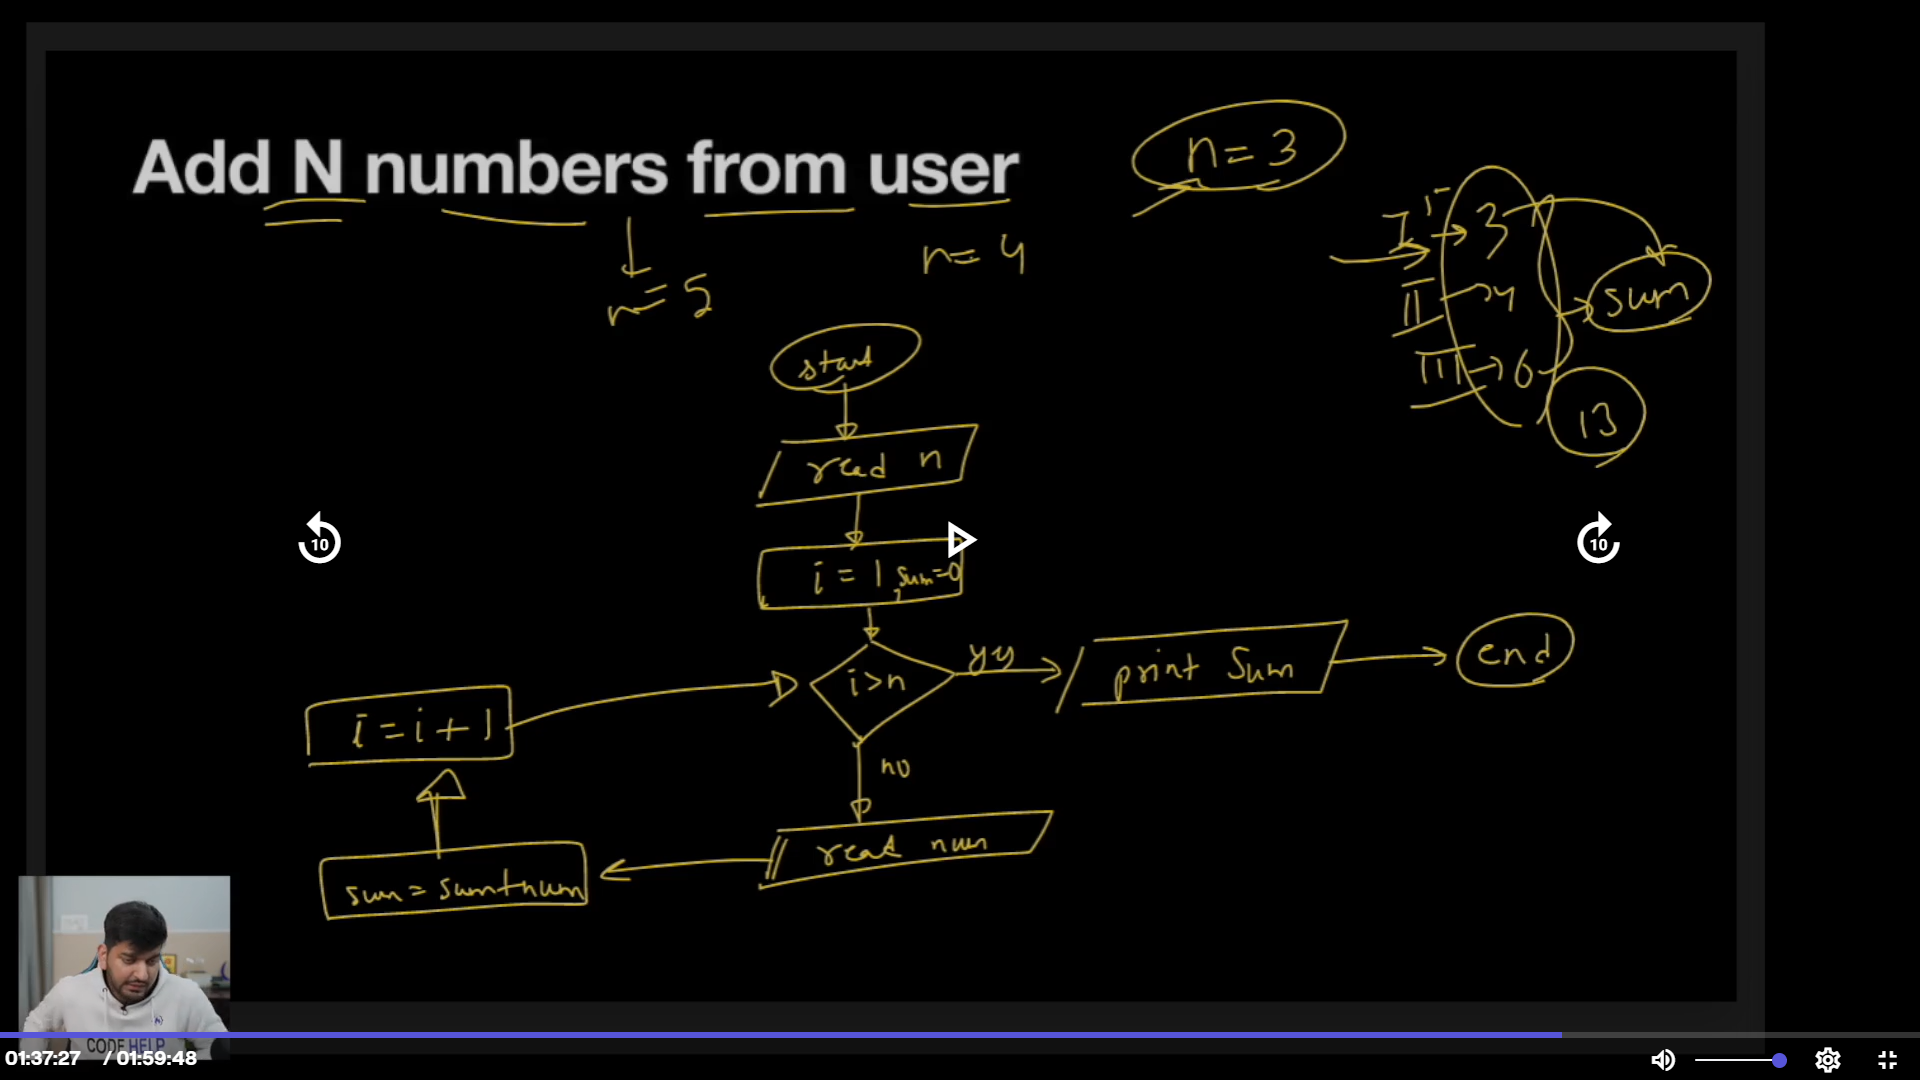 Add N numbers from user
n = 3
n = 5
n = 4
I → 3
II → 4
III → 6
sum
13
start
read n
i = 1, sum = 0
i > n
yes
print Sum
end
no
i = i + 1
read num
sum = sum + num
10
10
CODE HELP
01:37:27 / 01:59:48